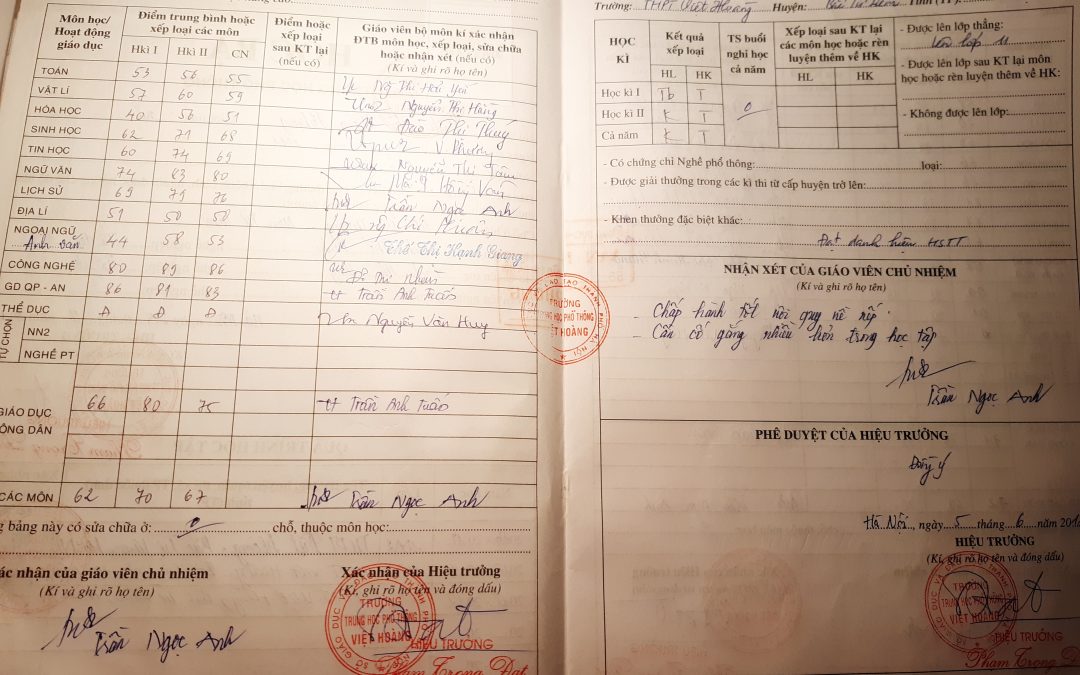 Môn học/
Hoạt động
giáo dục
Điểm trung bình hoặc
xếp loại các môn
Hkì I
Hkì II
CN
Điểm hoặc
xếp loại
sau KT lại
(nếu có)
Giáo viên bộ môn kí xác nhận
ĐTB môn học, xếp loại, sửa chữa
hoặc nhận xét (nếu có)
(Kí và ghi rõ họ tên)
TOÁN 53 56 55
VẬT LÍ 57 60 59 Nguyễn Thị Hằng
HÓA HỌC 40 56 51 Đào Thị Thúy
SINH HỌC 62 71 68
TIN HỌC 60 74 69 Nguyễn Thị
NGỮ VĂN 74 83 80
LỊCH SỬ 69 79 76 Trần Ngọc Anh
ĐỊA LÍ 51 50 50
NGOẠI NGỮ
Anh văn 44 58 53 Thị Hạnh Giang
CÔNG NGHỆ 80 89 86
GD QP - AN 86 81 83 Trần Anh Tuấn
THỂ DỤC Đ Đ Đ Nguyễn Văn Huy
TỰ CHỌN
NN2
NGHỀ PT
GIÁO DỤC
CÔNG DÂN 66 80 75 Trần Anh Tuấn
CÁC MÔN 62 70 67 Trần Ngọc Anh
bảng này có sửa chữa ở: 0 chỗ, thuộc môn học:
Xác nhận của giáo viên chủ nhiệm
(Kí và ghi rõ họ tên)
Trần Ngọc Anh
Xác nhận của Hiệu trưởng
(Kí, ghi rõ họ tên và đóng dấu)
TRƯỜNG
TRUNG HỌC PHỔ THÔNG
VIỆT HOÀNG
HIỆU TRƯỞNG
Phạm Trọng Đạt
TRƯỜNG
TRUNG HỌC PHỔ THÔNG
VIỆT HOÀNG
Trường: THPT Việt Hoàng Huyện: Bắc Từ Liêm Tỉnh (TP):
HỌC
KÌ
Kết quả
xếp loại
HL
HK
TS buổi
nghỉ học
cả năm
Xếp loại sau KT lại
các môn học hoặc rèn
luyện thêm về HK
HL
HK
Học kì I Tb T
Học kì II K T 0
Cả năm K T
- Được lên lớp thẳng:
lên lớp 11
- Được lên lớp sau KT lại môn
học hoặc rèn luyện thêm về HK:
- Không được lên lớp:
- Có chứng chỉ Nghề phổ thông: loại:
- Được giải thưởng trong các kì thi từ cấp huyện trở lên:
- Khen thưởng đặc biệt khác:
Đạt danh hiệu HSTT
NHẬN XÉT CỦA GIÁO VIÊN CHỦ NHIỆM
(Kí và ghi rõ họ tên)
- Chấp hành tốt nội quy nề nếp.
- Cần cố gắng nhiều hơn trong học tập
Trần Ngọc Anh
PHÊ DUYỆT CỦA HIỆU TRƯỞNG
Đồng ý
Hà Nội, ngày 5 tháng 6 năm 201
HIỆU TRƯỞNG
(Kí, ghi rõ họ tên và đóng dấu)
TRƯỜNG
TRUNG HỌC PHỔ THÔNG
VIỆT HOÀNG
HIỆU TRƯỞNG
Phạm Trọng Đ